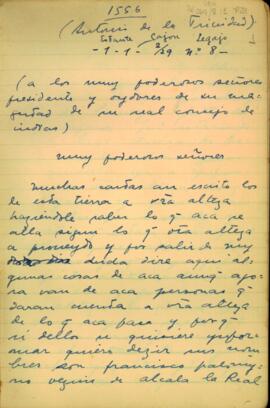 1556
(Antonio de la Trinidad)
Estante Cajon Legajo
-1-1- 2/29 nº 8-
(a los muy poderosos señores
presidente y oydores de su ma
gestad de su real consejo de
indias)
muy poderosos señores
muchas cartas an escrito los
de esta tierra a vra alteza
haziendole saber lo q aca se
alla sigun lo q vra alteza
a proueydo y por salir de muy
dicha dire aqui al
gunas cosas de aca aunq ago
ra van de aca personas q
daran cuenta a vra alteza
de lo q aca pasa y porq
si dellos se quisiere ynfor
mar quiero dezir sus nom
bres son francisco palomi
no vezino de alcala la Real